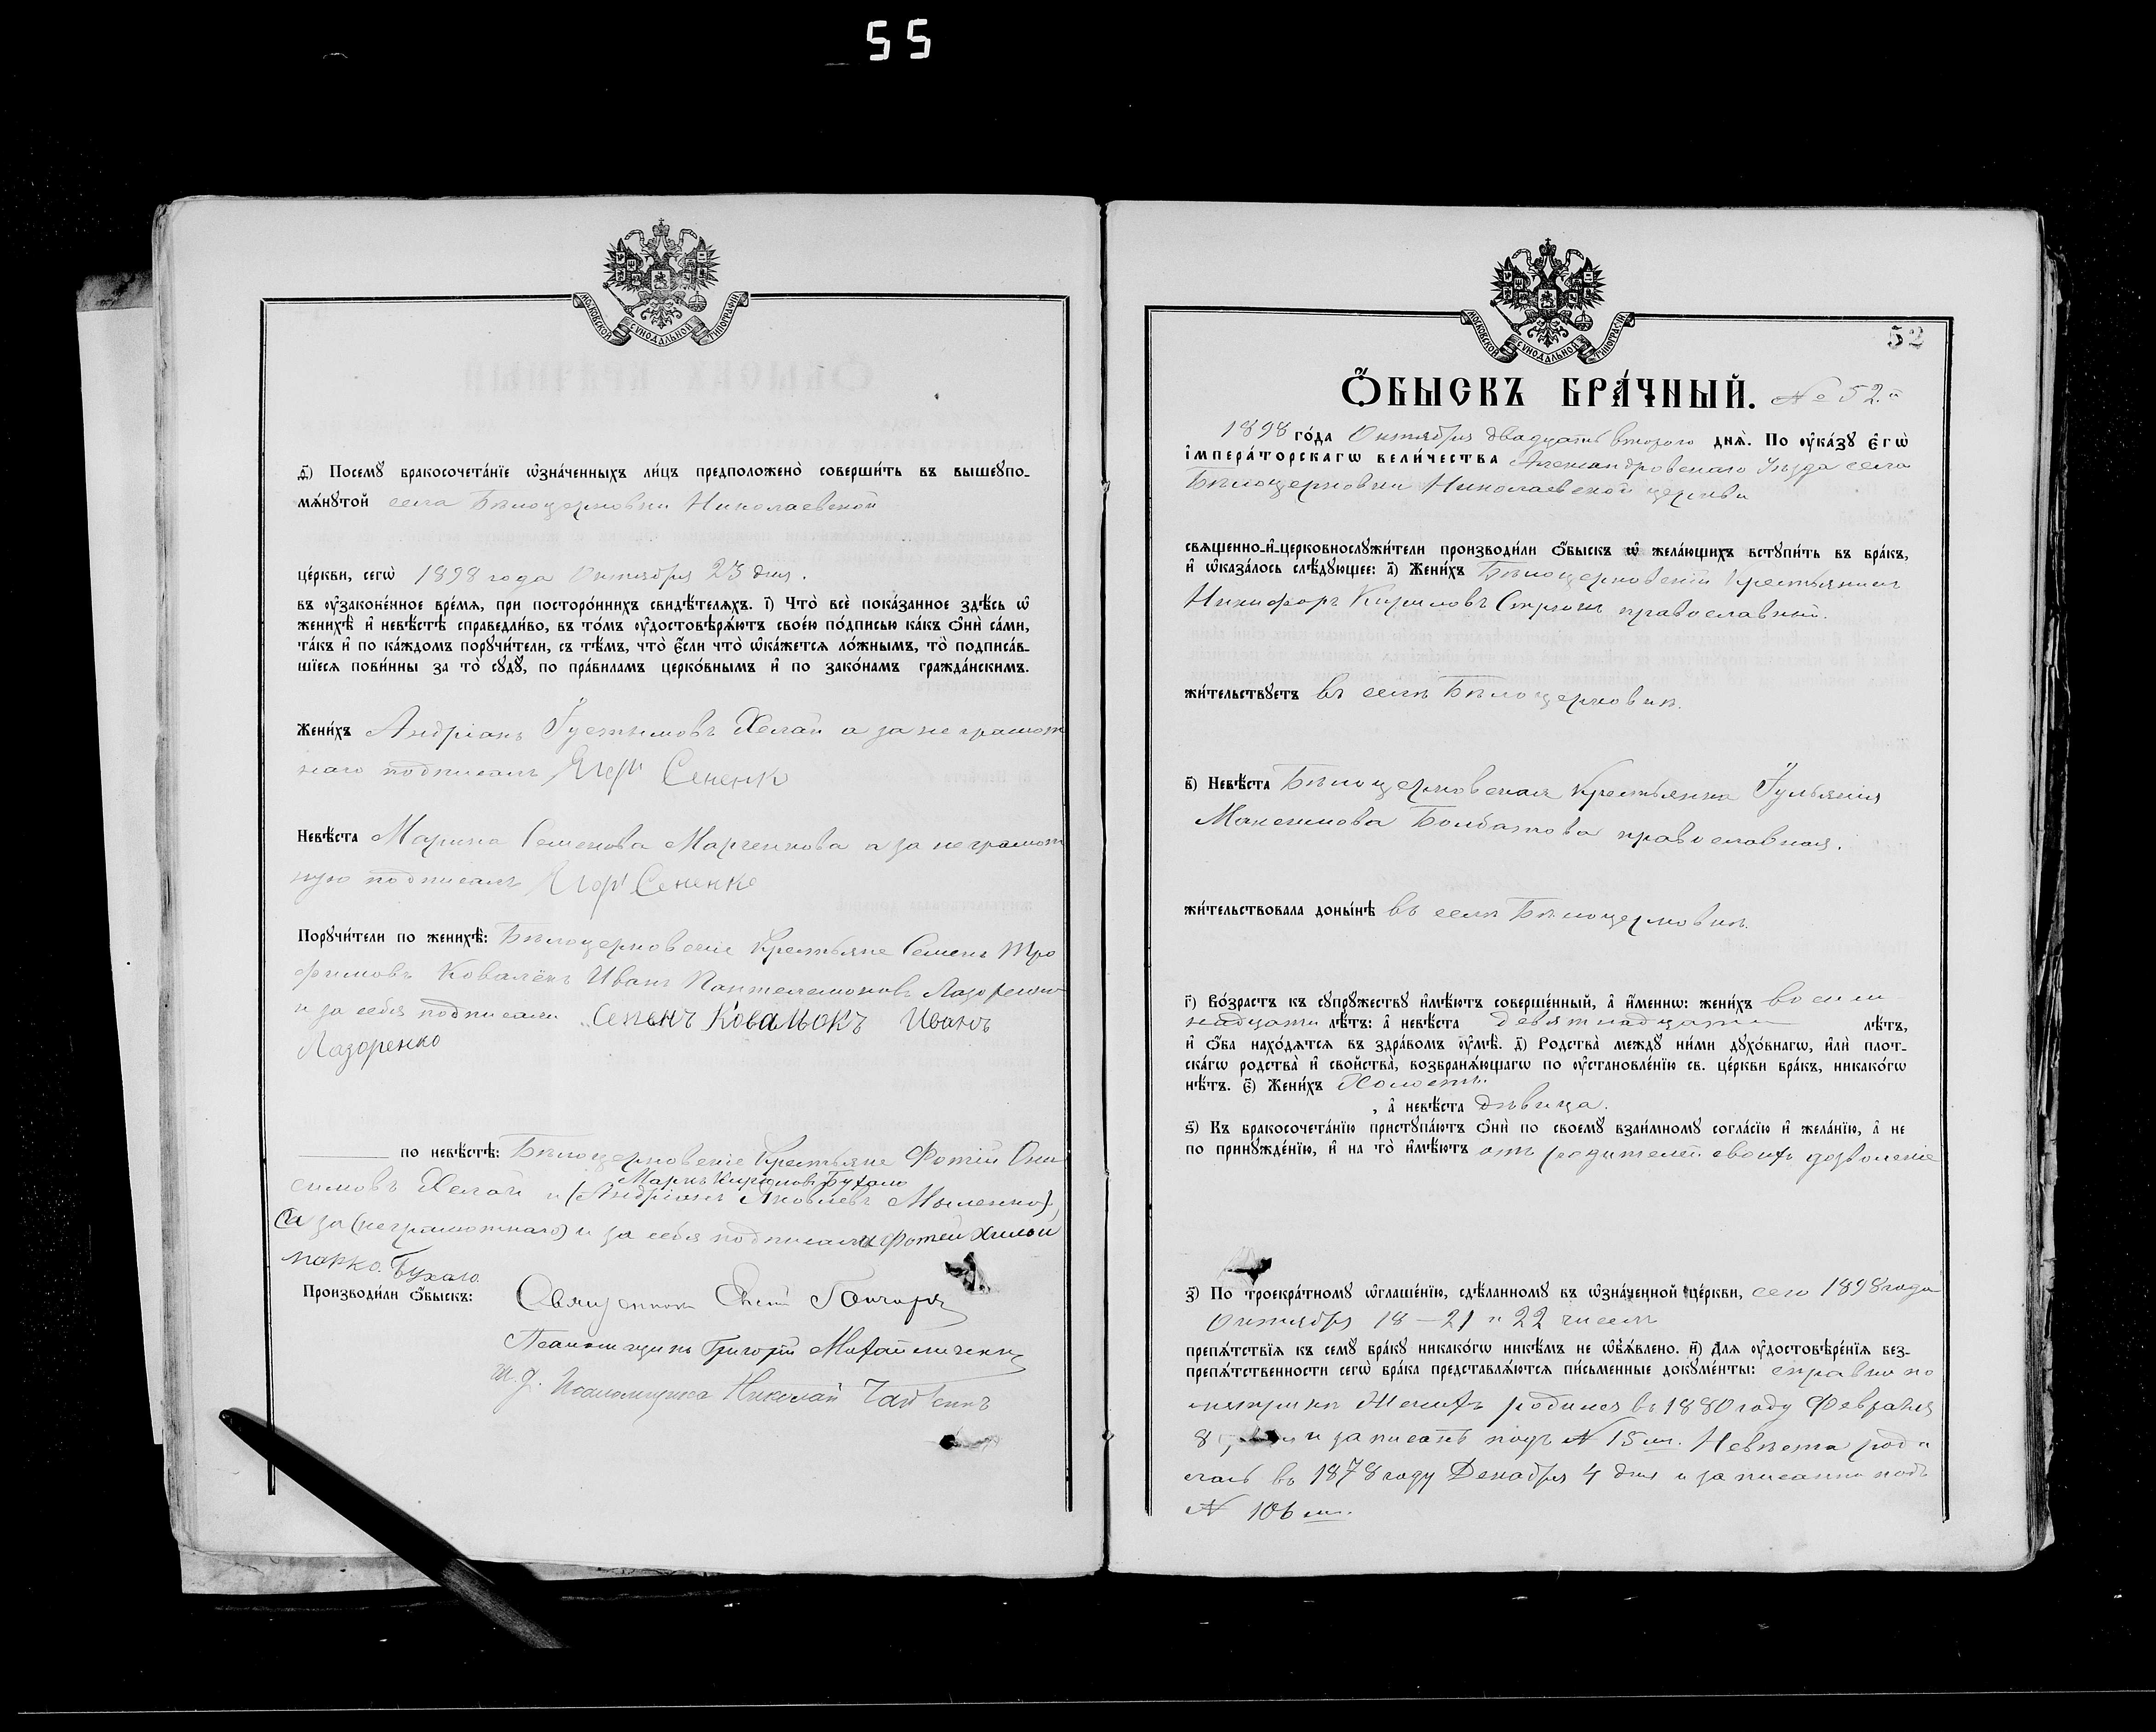 55
МОСКОВСКОЙ СѴНОДАЛЬНОЙ ТИПОГРАФІИ
Ѳ҃) Посемꙋ бракосочета́нїе ѡ҆зна́ченныхъ ли́цъ предположено̀ соверши́ть въ вышеупо-
мѧ́нꙋтой села Бѣлоцерковки Николаевской
це́ркви, сегѡ̀ 1898 года Октября 23 дня.
въ ᲂу҆законе́нное вре́мѧ, при посторо́ннихъ свидѣ́телѧхъ. і҃) Что̀ всѐ пока́занное здѣ́сь ѡ҆
женихѣ̀ и҆ невѣ́стѣ справедли́во, въ то́мъ ᲂу҆достовѣрѧ́ютъ свое́ю по́дписью ка́къ ѻ҆нѝ са́ми,
та́къ и҆ по ка́ждомъ порꙋчи́тели, съ тѣ́мъ, что̀ є҆́сли что̀ ѡ҆ка́жетсѧ ло́жнымъ, то̀ подписа́в-
шїесѧ пови́нны за то̀ сꙋдꙋ̀, по пра́виламъ церко́внымъ и҆ по зако́намъ гражда́нскимъ.
Жени́хъ Андріанъ Іустимовъ Хелай а за не грамот
наго подписалъ Егоръ Сененко
Невѣ́ста Марина Семенова Марченкова а за неграмот
ную подписалъ Егоръ Сененко
Порꙋчи́тели по женихѣ̀: Бѣлоцерковскіе Крестьяне Семенъ Тро
фимовъ Ковалёкъ Иванъ Пантелемоновъ Лазоренко
и за себя подписали Семенъ Ковальокъ Иванъ
Лазоренко
по невѣ́стѣ: Бѣлоцерковскіе Крестьяне Фотій Они
Марко Кириловъ Бухало
симовъ Хелай и (Андріанъ Яковлевъ Мыленко),
(а за (неграмотнаго) и за себя подписали Фотей Хилай
марко. Бухало.
Производи́ли ѻ҆́быскъ: Священникъ Гончаровъ
Псаломщикъ Григорій Михайличенко
и. д. Псаломщика Николай
МОСКОВСКОЙ СѴНОДАЛЬНОЙ ТИПОГРАФІИ
52
Ѻ҆́БЫСКЪ БРА́ЧНЫЙ. № 52.й
1898 го́да Октября двадцать второго днѧ̀. По ᲂу҆ка́зꙋ є҆гѡ̀
і҆мпера́торскагѡ вели́чества Александровскаго Уѣзда села
Бѣлоцерковки Николаевской церкви
свѧщенно-и҆-церковнослꙋжи́тели производи́ли ѻ҆́быскъ ѡ҆ жела́ющихъ встꙋпи́ть въ бра́къ,
и҆ ѡ҆каза́лось слѣ́дꙋющее: а҃) Жени́хъ Бѣлоцерковскій Крестьянинъ
Никифоръ Кириловъ Стрюкъ православный.
жи́тельствꙋетъ въ селѣ Бѣлоцерковкѣ.
в҃) Невѣ́ста Бѣлоцерковская Крестьянка Іульянія
Максимова Болбатова православная.
жи́тельствовала доны́нѣ въ селѣ Бѣлоцерковкѣ.
г҃) Во́зрастъ къ сꙋпрꙋ́жествꙋ и҆мѣ́ютъ соверше́нный, а҆ и҆́менно: жени́хъ восем
надцати лѣ́тъ: а҆ невѣ́ста девятнадцати лѣ́тъ,
и҆ ѻ҆́ба нахо́дѧтсѧ въ здра́вомъ ᲂу҆мѣ̀. д҃) Родства̀ междꙋ̀ ни́ми дꙋхо́внагѡ, и҆лѝ плот-
ска́гѡ родства̀ и҆ сво́йства, возбранѧ́ющагѡ по ᲂу҆становле́нїю св. це́ркви бра́къ, никако́гѡ
нѣ́тъ. є҃) Жени́хъ Холостъ.
, а҆ невѣ́ста дѣвица.
ѕ҃) Къ бракосочета́нїю пристꙋпа́ютъ ѻ҆нѝ по своемꙋ̀ взаи́мномꙋ согла́сїю и҆ жела́нїю, а҆ не
по принꙋжде́нїю, и҆ на то̀ и҆мѣ́ютъ отъ родителей своихъ дозволеніе
з҃) По троекра́тномꙋ ѡ҆глаше́нїю, сдѣ́ланномꙋ въ ѡ҆зна́ченной це́ркви, сего 1898 года
Октября 18 — 21 и 22 чиселъ
препѧ́тствїѧ къ семꙋ̀ бра́кꙋ никако́гѡ никѣ́мъ не ѡ҆б̾ѧ́влено. и҃) Длѧ̀ ᲂу҆достовѣре́нїѧ без-
препѧ́тственности сегѡ̀ бра́ка представлѧ́ютсѧ пи́сьменные докꙋме́нты: справки по
метрики Женихъ родился въ 1880 году Февраля
8 и записанъ подъ № 15 мъ. Невѣста роди
лась въ 1878 году Декабря 4 дня и записанна подъ
№ 106 мъ.